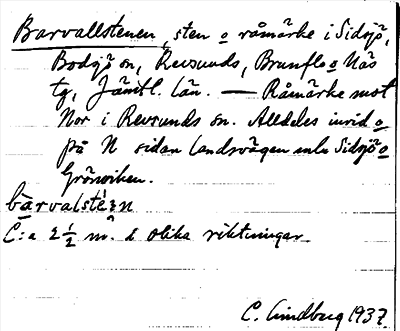 Barvallstenen, sten o råmärke i Sidsjö,
Bodsjö sn, Revsunds, Brunflo o Näs
tg, Jämtl. län. — Råmärke mot
Nor i Revsunds sn. Alldeles invid o
på N sidan landsvägen mln Sidsjö o
Grönviken.
C:a 2 1/2 m. i olika riktningar
C. Lindberg 1937